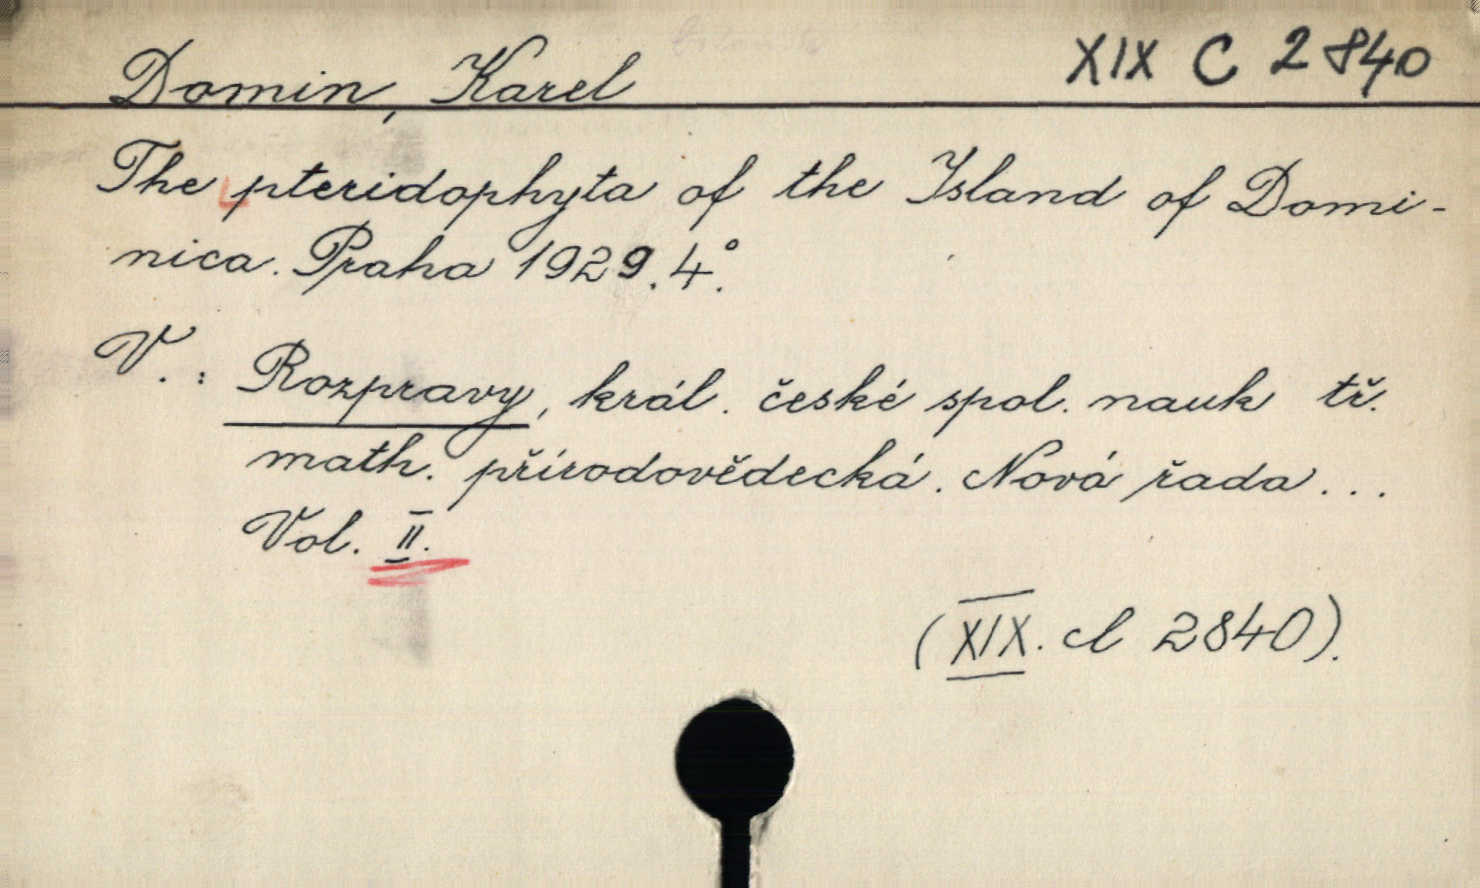 XIX C 2840
Domin, Karel
The pteridophyta of the Island of Domi-
nica. Praha 1929. 4°.
V.: Rozpravy, král. české spol. nauk tř.
math. přírodovědecká. Nová řada...
Vol. II.
(XIX. cl 2840).